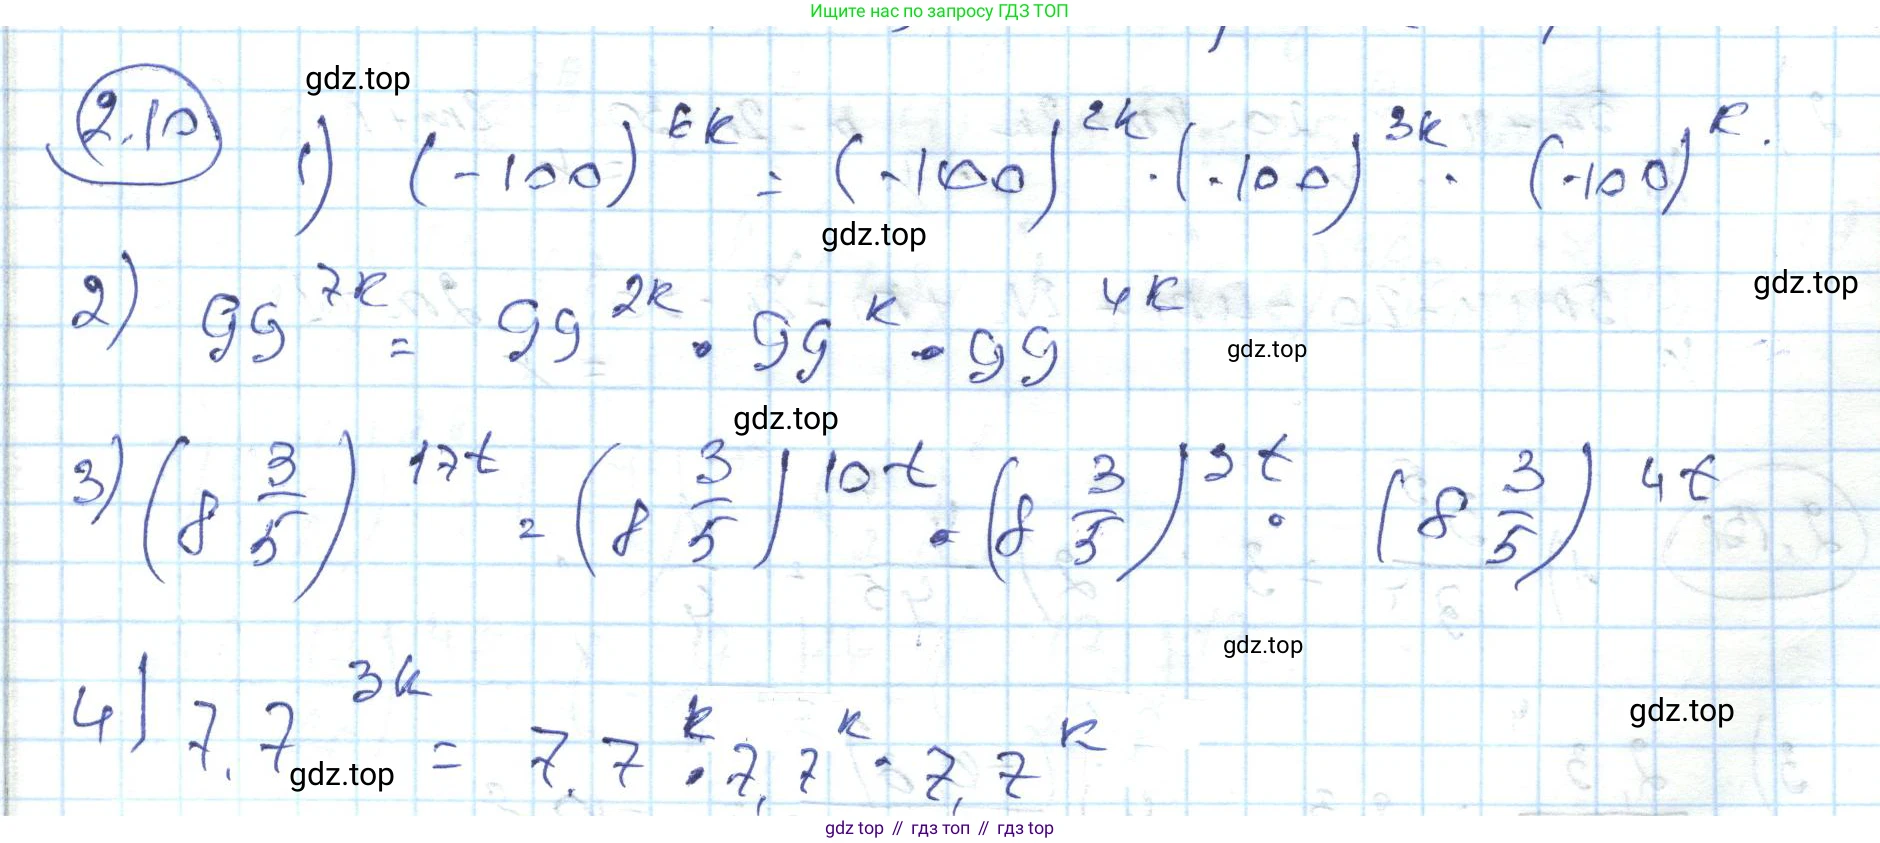 Ищите нас по запросу ГДЗ ТОП
2.10
gdz.top
1) (-100)^{6k} = (-100)^{2k} · (-100)^{3k} · (-100)^{k}.
gdz.top
gdz.top
2) 99^{7k} = 99^{2k} · 99^{k} · 99^{4k}
gdz.top
gdz.top
3) (8 3/5)^{17t} = (8 3/5)^{10t} · (8 3/5)^{3t} · (8 3/5)^{4t}
gdz.top
gdz.top
4) 7,7^{3k} = 7,7^{k} · 7,7^{k} · 7,7^{k}
gdz.top
gdz top // гдз топ // gdz top